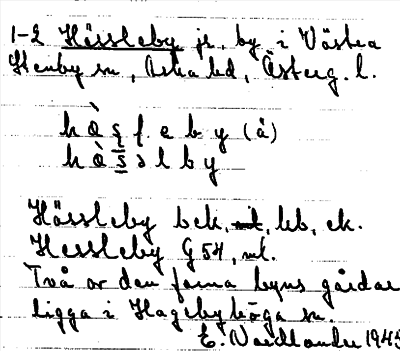 1-2 Hässleby jr. by i Västra
Stenby sn, Aska hd, Österg. l.
h ạ̀ s f e b y (å)
h ạ̀ s s l b y
Hässleby bek., kb, ek.
Hessleby G 54,
Två av den forna byns gårdar
ligga i Hagebyhöga sn.
E. Nordlander 1945